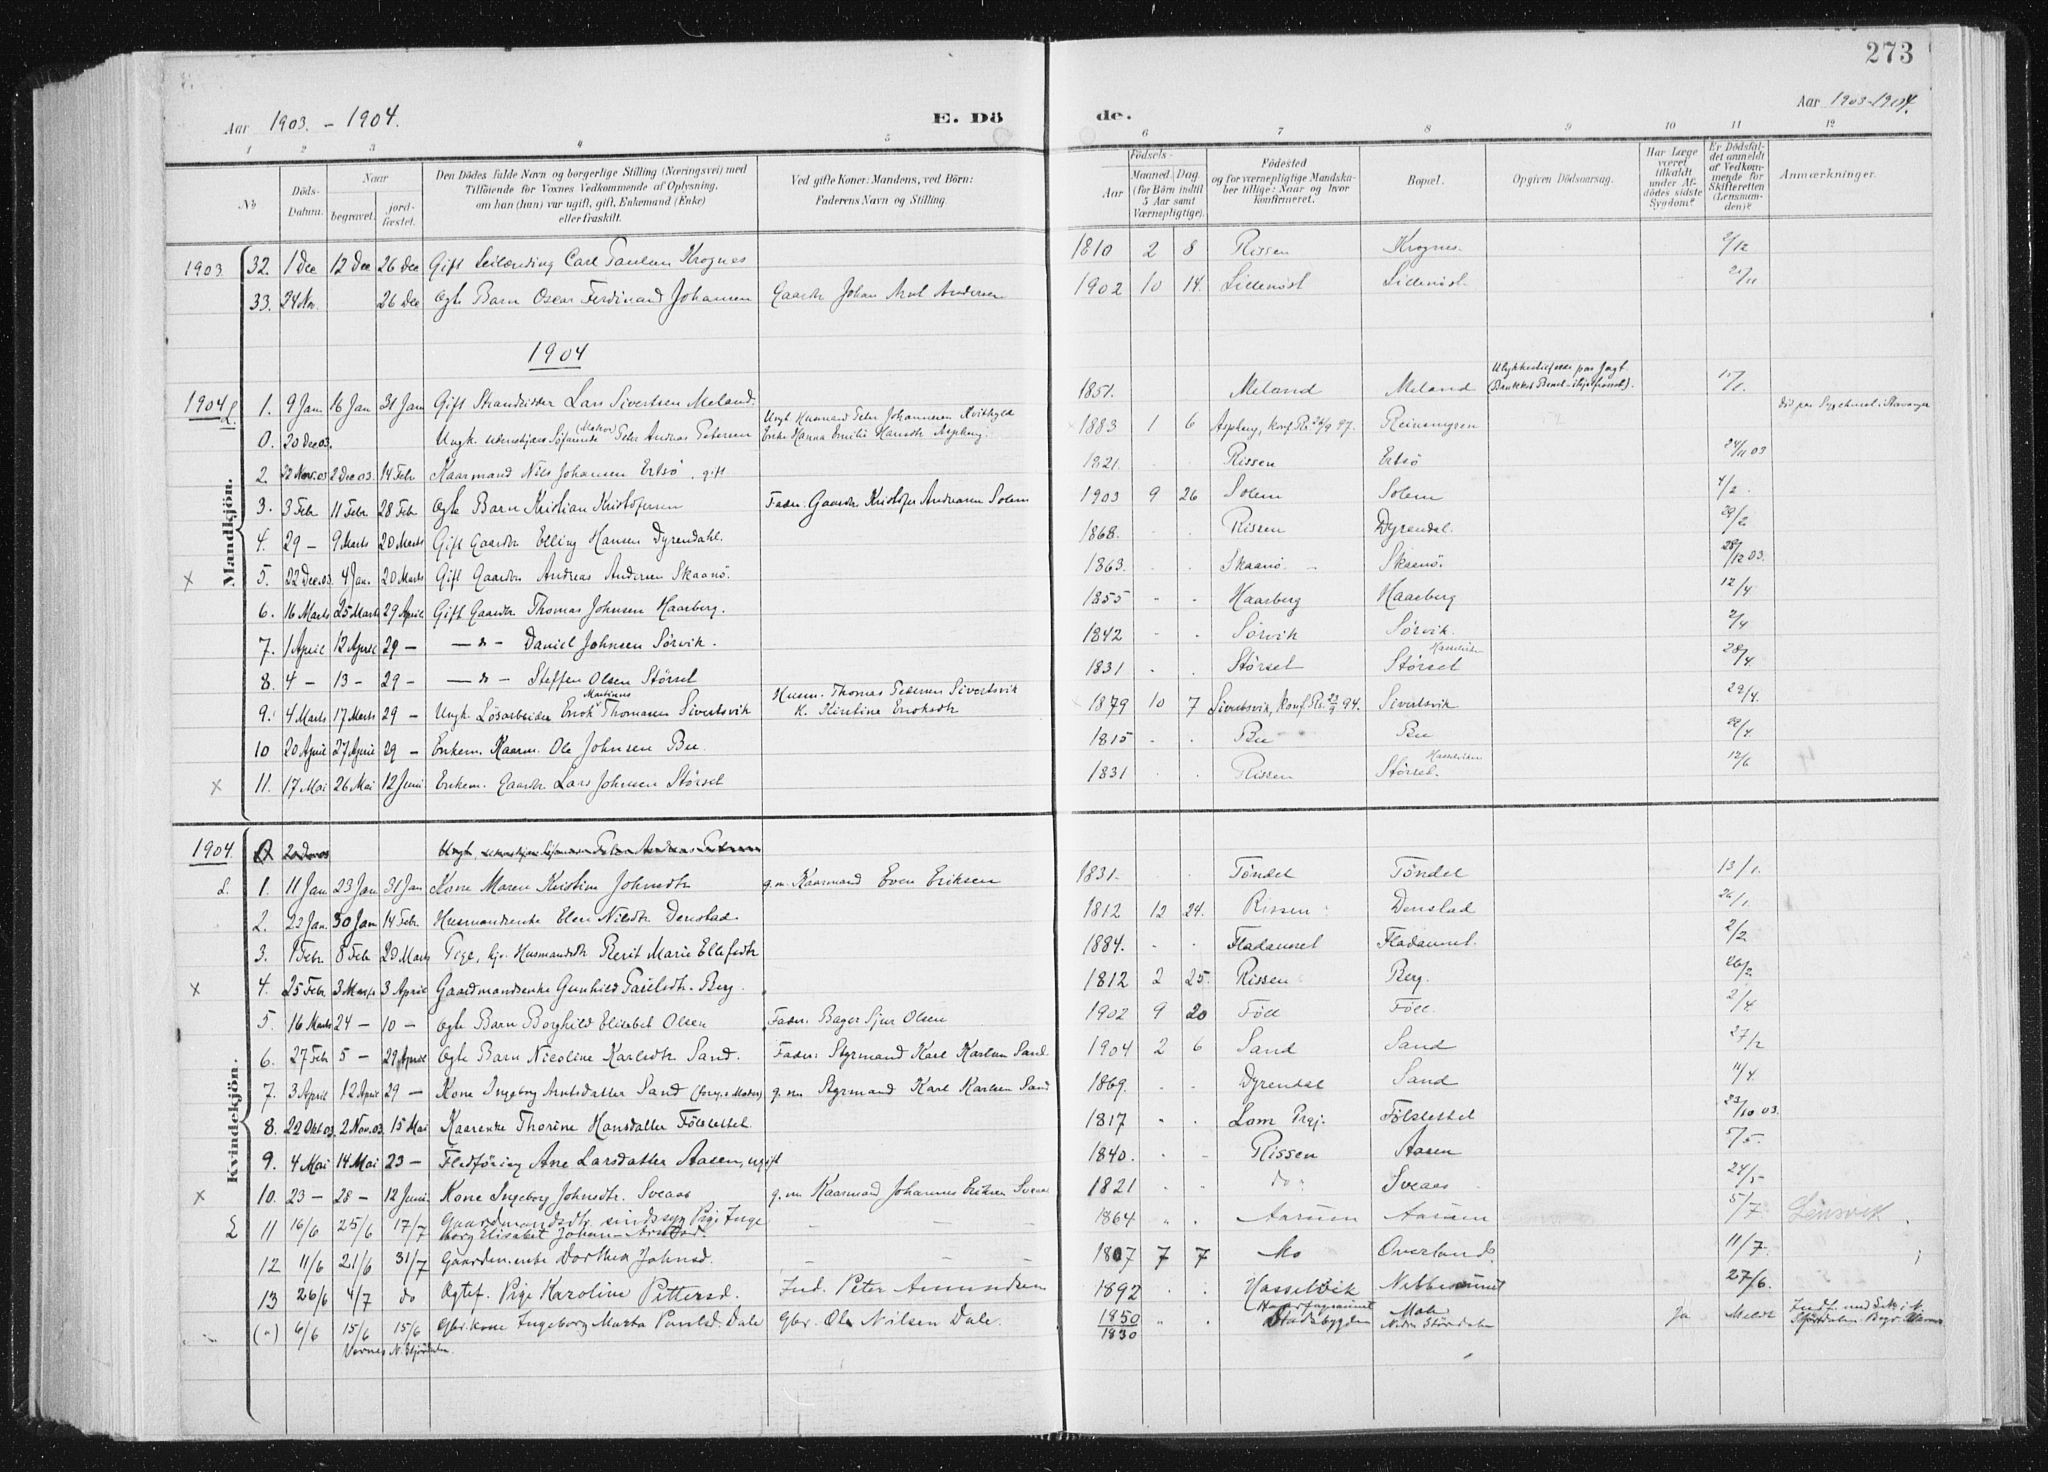 273
Aar 1903. - 1904.
E. Dö
de.
Aar 1903-1904.
1 2 3 4 5 6 7 8 9 10 11 12
№
Döds-Datum.
Naar
begravet.
jord-fæstet.
Den Dödes fulde Navn og borgerlige Stilling (Næringsvei) med
Tilföiende for Voxnes Vedkommende af Oplysning,
om han (hun) var ugift, gift, Enkemand (Enke)
eller fraskilt.
Ved gifte Koner: Mandens, ved Börn:
Faderens Navn og Stilling.
Födsels-
Aar
Maaned. Dag.
(for Börn indtil
5 Aar samt
Værnepligtige).
Födested
og for værnepligtige Mandska-
ber tillige: Naar og hvor
Konfirmeret.
Bopæl.
Opgiven Dödsaarsag.
Har Læge
været
tilkaldt
under Af-
dödes sidste
Sygdom?
Er Dödsfal-
det anmeldt
af Vedkom-
mende for
Skifteretten
(Lensman-
den)?
Anmærkninger.
Mandkjön.
1903 32. 1 Dec 12 Dec 26 Dec Gift Leilænding Carl Paulsen Krognes 1810 2 8 Rissen Krognes. 2/12
33. 24 Nov. 26 Dec Ægte Barn Oscar Ferdinand Johansen Gaardbr Johan Arnt Andersen 1902 10 14. Lidenöst Lidenöst. 21/11
1904
1904 1. 9 Jan. 16 Jan 31 Jan Gift Strandsidder Lars Sivertsen Meland. 1851. Meland Meland
0. 20 Dec 03. Ungk. udenskjærs Söfarende Peter Andreas Petersen Ungk Husmand Peter Johannesen Kvithyld
Enke Hanna Emilie Hansdtr Aspheug. 1883 1 6 Aspheug, konf. R. 26/9 97. Reinsmyren Död paa Sygehuset i Stavanger
2. 22 Nov. 03 2 Dec 03 14 Febr Kaarmand Nils Johansen Ertsö. gift 1821. Rissen Ertsö 24/11 03
3. 3 Febr 11 Febr 28 Feb Ægte Barn Kristian Kristofersen Fader: Gaardbr Kristofer Andreasen Solem 1903 9 26 Solem Solem 4/2.
4. 29 - 9 Marts 20 Marts Gift Gaardbr Elling Hansen Dyrendahl. 1868. Rissen Dyrendal. 29/2
x 5. 22 Dec. 03. 4 Jan. 20 Marts Gift Gaardbr Andreas Andersen Skaanö. 1863. Skaanö Skaanö. 28/12 03.
6. 16 Marts 25 Marts 29 April Gift Gaardbr Thomas Johnsen Haarberg. 1855 Haarberg Haarberg 12/4
7. 1 April 12 April 29 - — " - Daniel Johnsen Sörvik. 1842 Sörvik Sörvik. 2/4
8. 4 - 13 - 29 - — " - Steffen Olsen Störset 1831 Störset Störset Hasselviken 28/4
9. 4 Marts 17 Marts 29 - Ungk. Lösarbeider Erik Martinus Thomasen Sivertsvik Husm. Thomas Pedersen Sivertsvik
K. Kirstine Eriksdtr 1879 10 7 Sivertsvik, konf. R. 23/9 94. Sivertsvik 29/4.
10 20 April 27 April 29 - Enkem. Kaarm. Ole Johnsen Bu. 1815 Bu Bu
x 11. 17 Mai 26 Mai 12 Juni Enkem. Gaardbr Lars Johnsen Störset 1831 Rissen Störset. Hasselviken 12/6
Kvindekjön.
1904
1. 11 Jan 23 Jan 31 Jan Kone Maren Kristine Johnsdtr g.m. Kaarmand Even Eriksen 1831. Töndel Töndel 13/1.
2. 22 Jan. 30 Jan 14 Febr. Husmandsenke Elen Nilsdtr Denstad. 1812 12 24. Rissen Denstad 26/1.
3. 1 Febr 8 Feb 20 Marts Pige, kjr. Husmandsdtr Berit Marie Ellefsdtr 1884. Fladaunet Fladaunet. 2/2
x 4. 25 Febr 3 Marts 3 April Gaardmandsenke Gunhild Paulsdtr. Berg. 1812 2 25. Rissen Berg. 26/2
5. 16 Marts 24 - 10 - Ægte Barn Borghild Elisabet Olsen Fader: Bager Sjur Olsen 1902 9 20 Föll Föll. 2/4
6. 27 Febr 5 - 29 April Ægte Barn Nicoline Karlsdtr Sand. Fader: Styrmand Karl Karlsen Sand 1904 2 6 Sand Sand 27/2
7. 3 April 12 April 29 - Kone Ingeborg Arntsdatter Sand g.m. Styrmand Karl Karlsen Sand 1869. Dyrendal Sand 11/4.
8. 22 Okt 03. 2 Nov. 03. 15 Mai Kaarenke Thorine Hansdatter Fölstettet 1817 Lom Prgj. Fölstettet 23/10 03.
9. 4 Mai 14 Mai 23 - Fledföring Ane Larsdatter Aasen, ugift 1840. Rissen Aasen 5/5.
x 10. 23 - 28 - 12 Juni Kone Ingeborg Johnsdtr. Sveaas g.m Kaarmand Johannes Eriksen Sveaas 1821 do Sveaas 24/5
11 16/6 25/6 17/7 Gaardmandsdtr. sindssyg Pige Inge
borg Elisabet Johan Arntsd. — — — 1864 Aarum Aarum 5/7 Lensvik
12 11/6 21/6 31/7 Gaardm.enke Dorthea Johnsd. — — — 1807 7 7 Mo Overland 11/7.
13 26/6 4/7 do Ægtef. Pige Karoline Pettersd. Ind. Peter Amundsen 1892 Hasselvik Nebbesaunet 27/6.
(") 6/6 15/6 15/6 Gbr. kone Ingeborg Marta Paulsd. Dale Gbr. Ole Nilsen Dale. 1850 Stadsbygden Nedre Stördalen Ja Meldt
Vernes N. Stjördalen. 1830